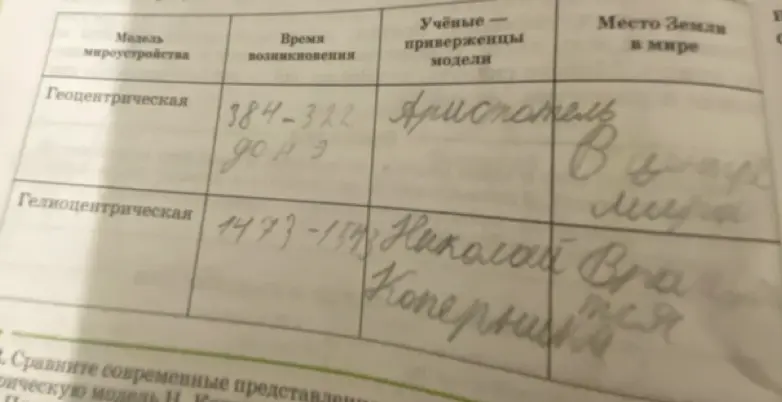 Модель
мироустройства
Время
возникновения
Учёные —
приверженцы
модели
Место Земли
в мире
Геоцентрическая
384-322
до н э
Аристотель
В центре
мира
Гелиоцентрическая
1473-1543
Николай
Коперник
Сравните современные представлен
рическую модель Н.